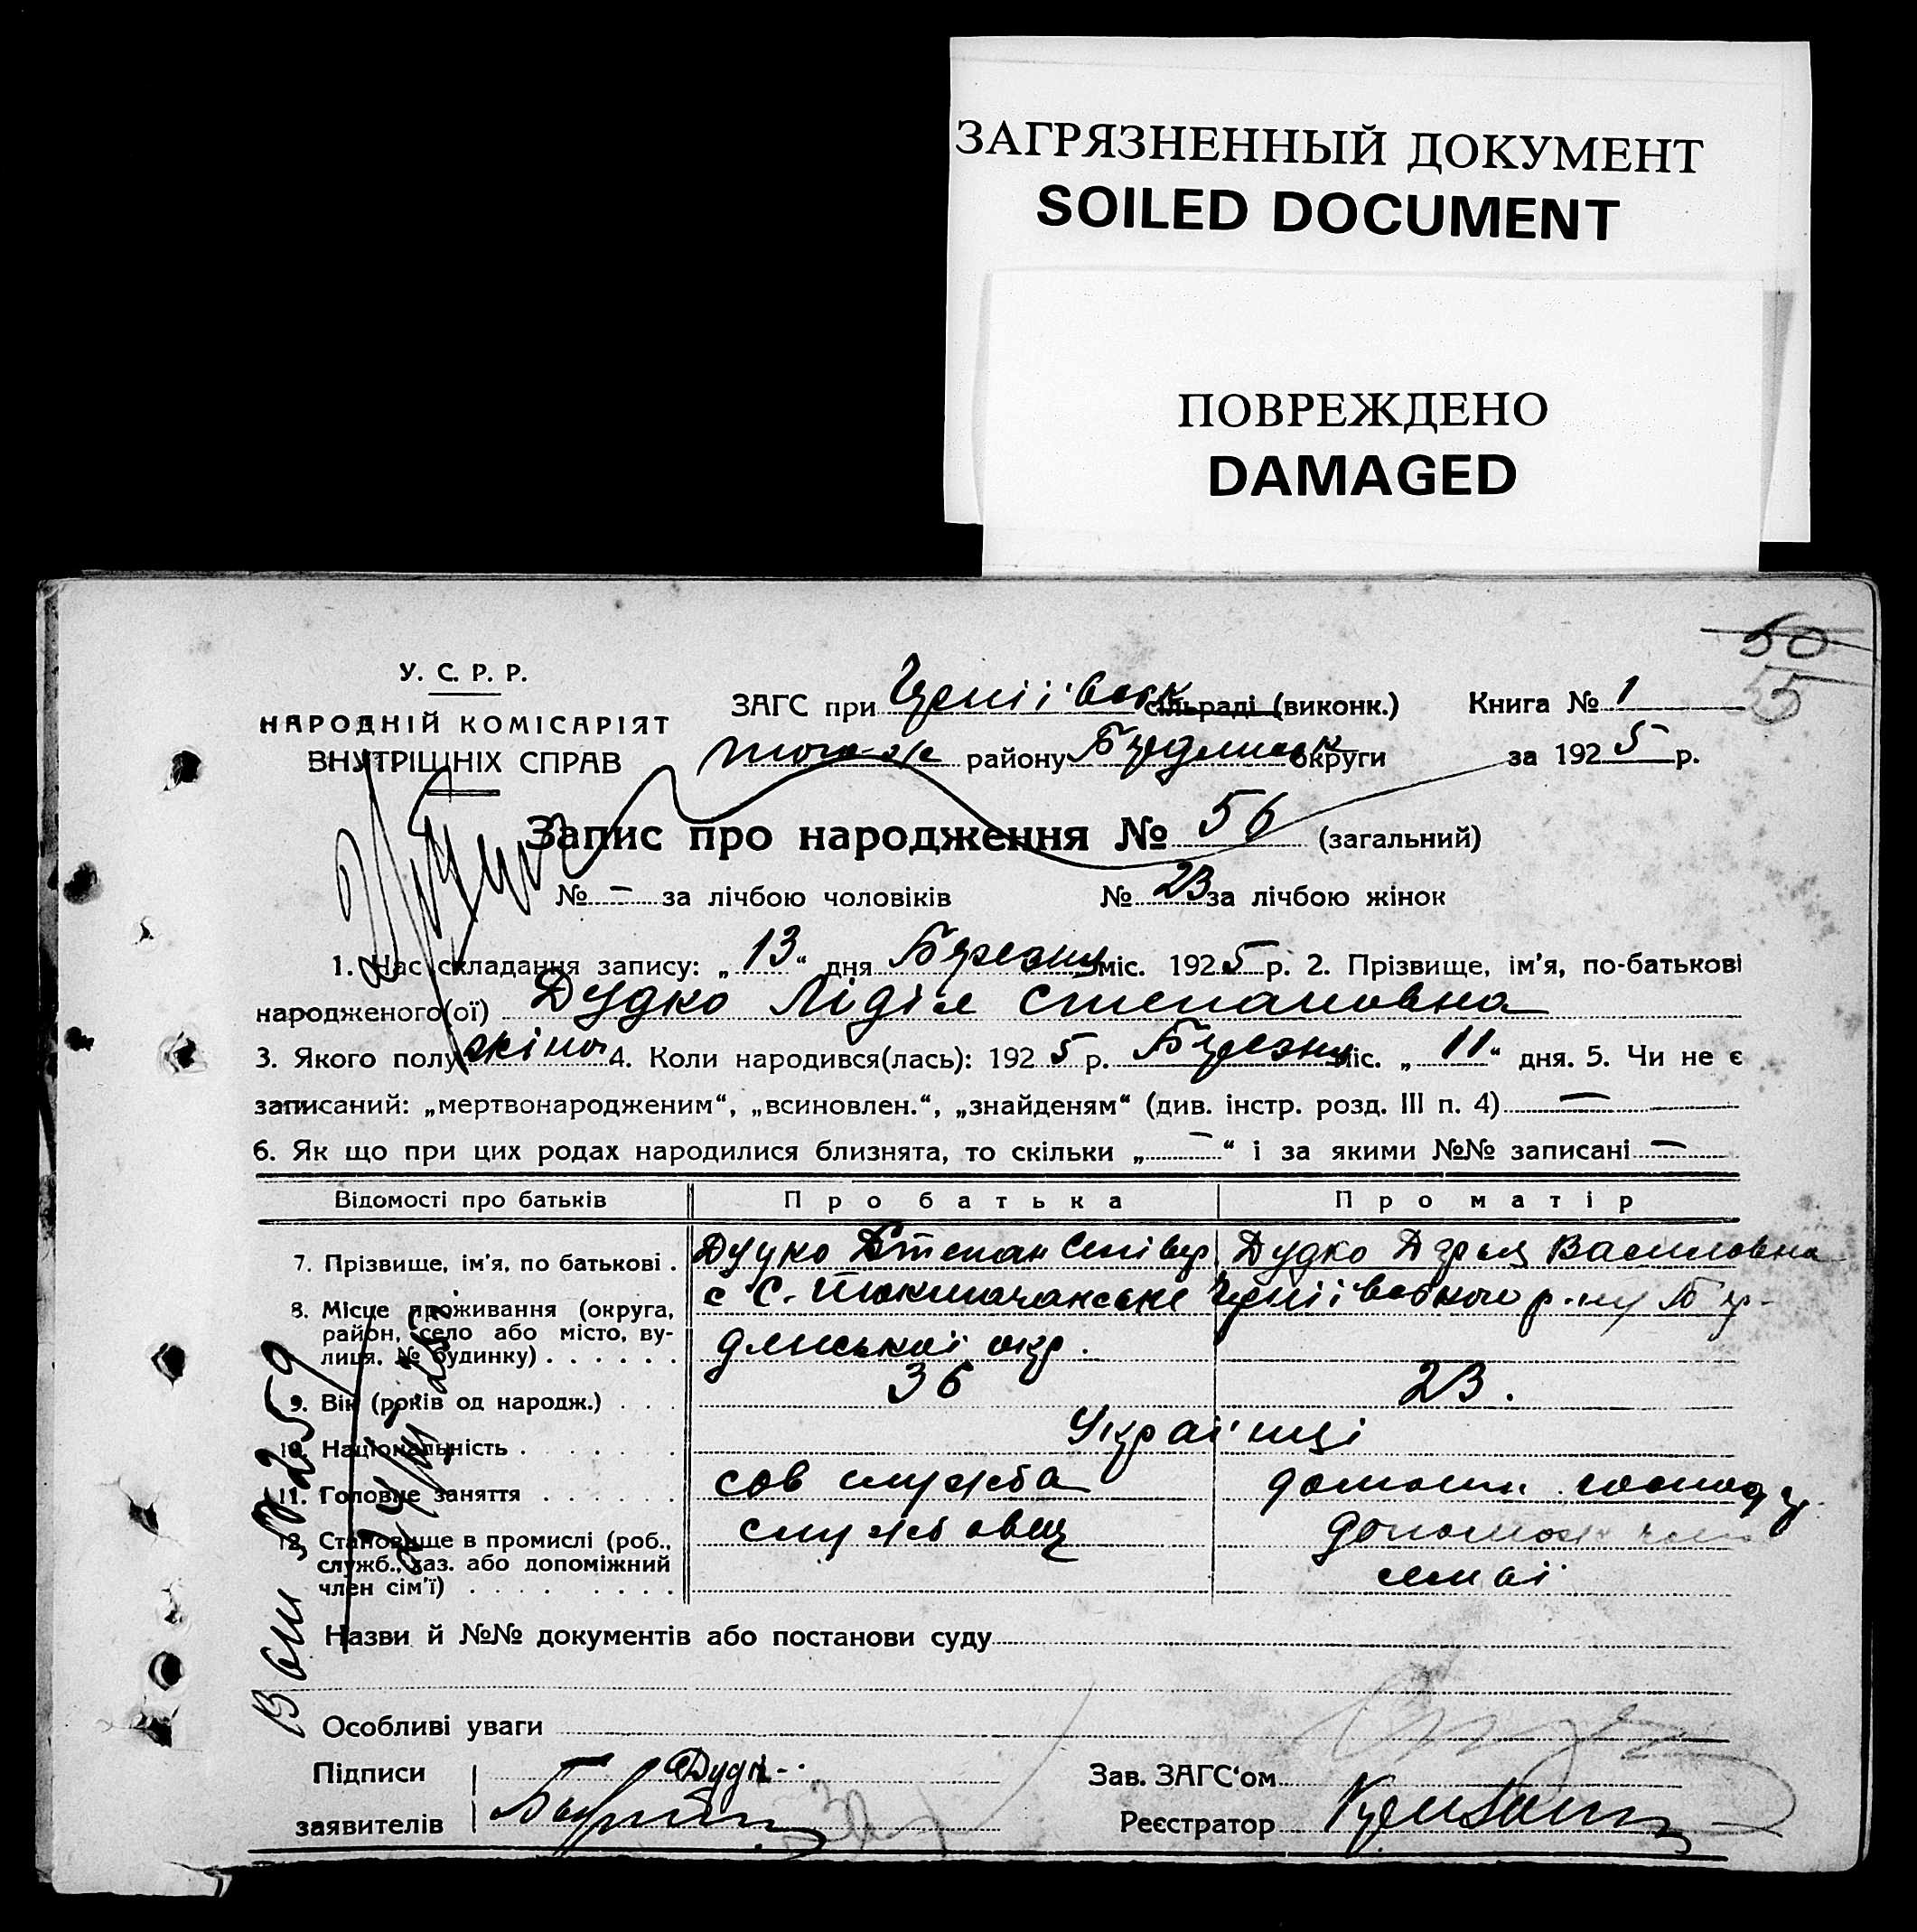 ЗАГРЯЗНЕННЫЙ ДОКУМЕНТ
SOILED DOCUMENT
ПОВРЕЖДЕНО
DAMAGED
50
55
У. С. Р. Р.
НАРОДНІЙ КОМІСАРІЯТ
ВНУТРІШНІХ СПРАВ
ЗАГС при сільраді (виконк.) Книга № 1
того-ж району округи за 1925 р.
Запис про народження № 56 (загальний)
№ – за лічбою чоловіків № 23 за лічбою жінок
1. Час складання запису: „13“ дня Березня міс. 1925 р. 2. Прізвище, ім'я, по-батькові
народженого(ої) Дудко Лідія Степановна
3. Якого полу жіноч 4. Коли народився(лась): 1925 р. Березня міс. „11“ дня. 5. Чи не є
записаний: „мертвонародженим“, „всиновлен.“, „знайденям“ (див. інстр. розд. III п. 4) —
6. Як що при цих родах народилися близнята, то скільки „–“ і за якими №№ записані –
Відомості про батьків Про батька Про матір
7. Прізвище, ім'я, по батькові . Дудко Степан Дудко Дарья Василовна
8. Місце проживання (округа,
район, село або місто, ву-
лиця, № будинку) . . . . . .
с С. р-ну Бер-
дянської окр.
9. Вік (років од народж.) . . . 36 23.
10. Національність . . . . . . Українці
11. Головне заняття . . . . . сов служба домашн. господ
12. Становище в промислі (роб.,
служб., хаз. або допоміжний
член сім'ї) . . . . . . . . .
службовец
допомож член
семьї
Назви й №№ документів або постанови суду
Особливі уваги
Підписи Зав. ЗАГС'ом
заявителів Реєстратор